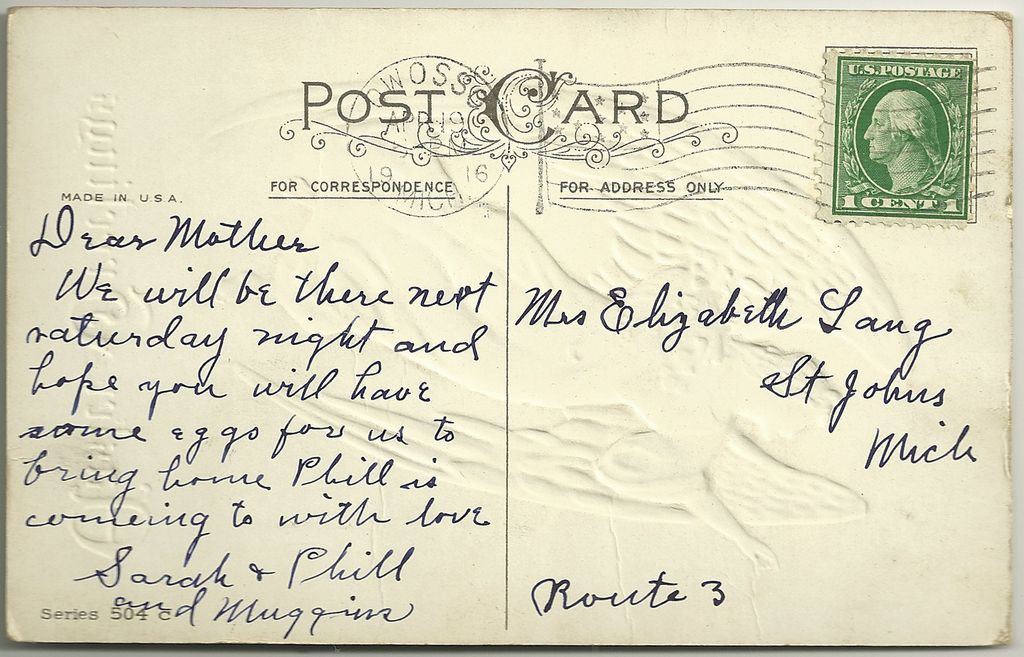 POST CARD
OWOSSO
APR 19
19 16
MICH.
U.S. POSTAGE
1 CENT 1
FOR CORRESPONDENCE
FOR ADDRESS ONLY
MADE IN U.S.A.
Dear Mother
We will be there next
saturday night and
hope you will have
some eggs for us to
bring home Phill is
comeing to with love
Sarah & Phill
and Muggins
Series 504 C
Mrs Elizabeth Lang
St Johns
Mich
Route 3